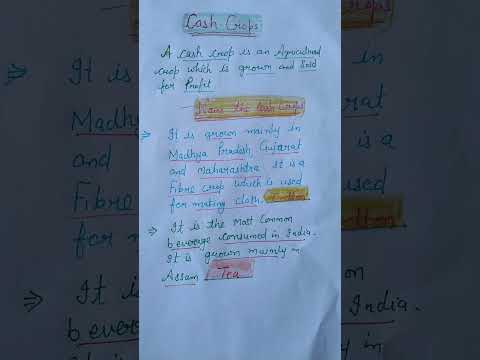 Cash Crops
A cash crop is an Agricultural
crop which is grown and Sold
for Profit
Name the Cash Crops
⇒ It is grown mainly in
Madhya Pradesh, Gujarat
and maharashtra it is a
Fibre crop which is used
for making cloth. Cotton
⇒ It is the Most Common
beverage consumed in India.
It is grown mainly in
Assam. Tea